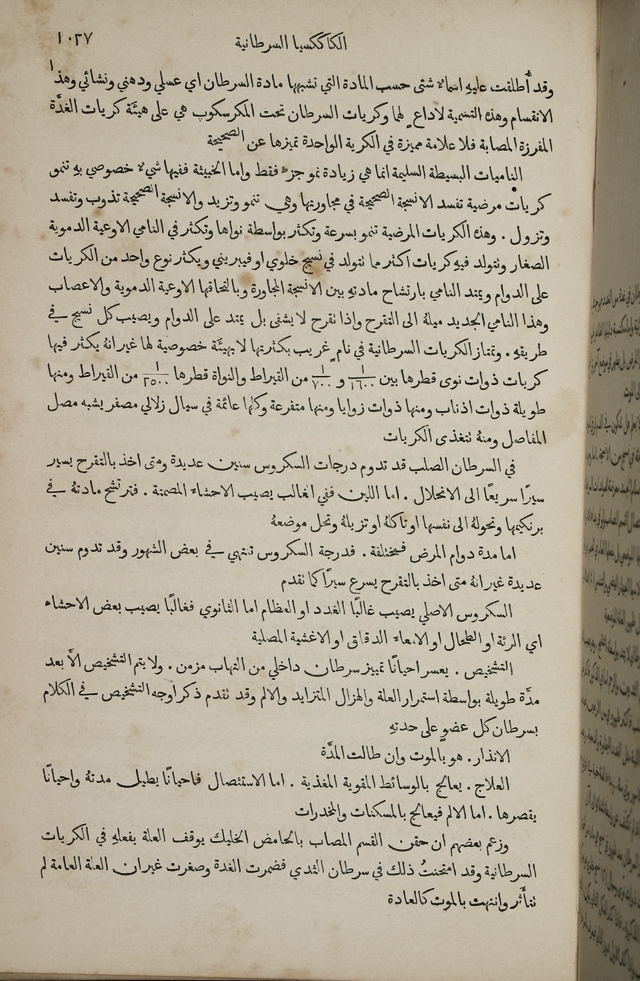 الكاككسيا السرطانية ١٠٢٧
وقد أُطلقت عليهِ اسماء شتى حسب المادة التي تشبهها مادة السرطان اي عسلي ودهني ونشائي وهذا
الانقسام وهذه التسمية لاداعٍ لها وكريات السرطان تحت المكرسكوب هي على هيئَة كريات الغدَّة
المفرزة المصابة فلا علامة مميزة في الكرية الواحدة تميزها عن الصحيحة
الناميات البسيطة السليمة انما هي زيادة نمو جزء فقط واما الخبيثة ففيها شيء خصوصي به تنمو
كريات مرضية تفسد الانسجة الصحيحة في مجاورتها وهي تنمو وتزيد والانسجة الصحيحة تذوب وتفسد
وتزول . وهذه الكريات المرضية تنمو بسرعة وتكثر بواسطة نواها وتكثر في النامي الاوعية الدموية
الصغار وتتولد فيهِ كريات اكثر مما تتولد في نسيج خلوي او فيبريني ويكثر نوع واحد من الكريات
على الدوام ويمتد النامي بارتشاح مادتهِ بين الانسجة المجاورة وبالتحاقها الاوعية الدموية والاعصاب
وهذا النامي الجديد ميلهُ الى التقرح واذا تقرح لا يشفى بل يمتد على الدوام ويصيب كل نسيج في
طريقهِ . وتمتاز الكريات السرطانية في نامٍ غريب بكثرتها لا بهيئَة خصوصية لها غير انهُ يكثر فيها
كريات ذوات نوى قطرها بين ١/١٦٠٠ و ١/٧٠٠ من القيراط والنواة قطرها ١/٣٥٠٠ من القيراط ومنها
طويلة ذوات اذناب ومنها ذوات زوايا ومنها متفرعة وكلها عائمة في سيال زلالي مصفر يشبه مصل
المفاصل ومنهُ تتغذى الكريات
في السرطان الصلب قد تدوم درجات السكروس سنين عديدة ومتى اخذ بالتقرح يسير
سيرًا سريعًا الى الانحلال . اما اللين ففي الغالب يصيب الاحشاء المصمتة . فترتشح مادتهُ في
برنكيمتها وتحولهُ الى نفسها او تأكلهُ او تزيلهُ وتحل موضعهُ
اما مدة دوام المرض فمختلفة . فدرجة السكروس تنتهي في بعض الشهور وقد تدوم سنين
عديدة غير انهُ متى اخذ بالتقرح يسرع سيرًا كما تقدم
السكروس الاصلي يصيب غالبًا الغدد او العظام اما الثانوي فغالبًا يصيب بعض الاحشاء
اي الرئة او الطحال او الامعاء الدقاق او الاغشية المصلية
التشخيص . يعسر احيانًا تمييز سرطان داخلي من التهاب مزمن . ولا يتم التشخيص الاَّ بعد
مدَّة طويلة بواسطة استمرار العلة والهزال المتزايد والالم وقد تقدم ذكر اوجه التشخيص في الكلام
بسرطان كل عضوٍ على حدتهِ
الانذار . هو بالموت وان طالت المدَّة
العلاج . يعالج بالوسائط المقوية المغذية . اما الاستئصال فاحيانًا يطيل مدتهُ واحيانًا
يقصرها . اما الالم فيعالج بالمسكنات والمخدرات
وزعم بعضهم ان حقن القسم المصاب بالحامض الخليك يوقف العلة بفعلهِ في الكريات
السرطانية وقد امتحنتُ ذلك في سرطان الثدي فضمرت الغدة وصغرت غير ان العلة العامة لم
تتأثر وانتهت بالموت كالعادة